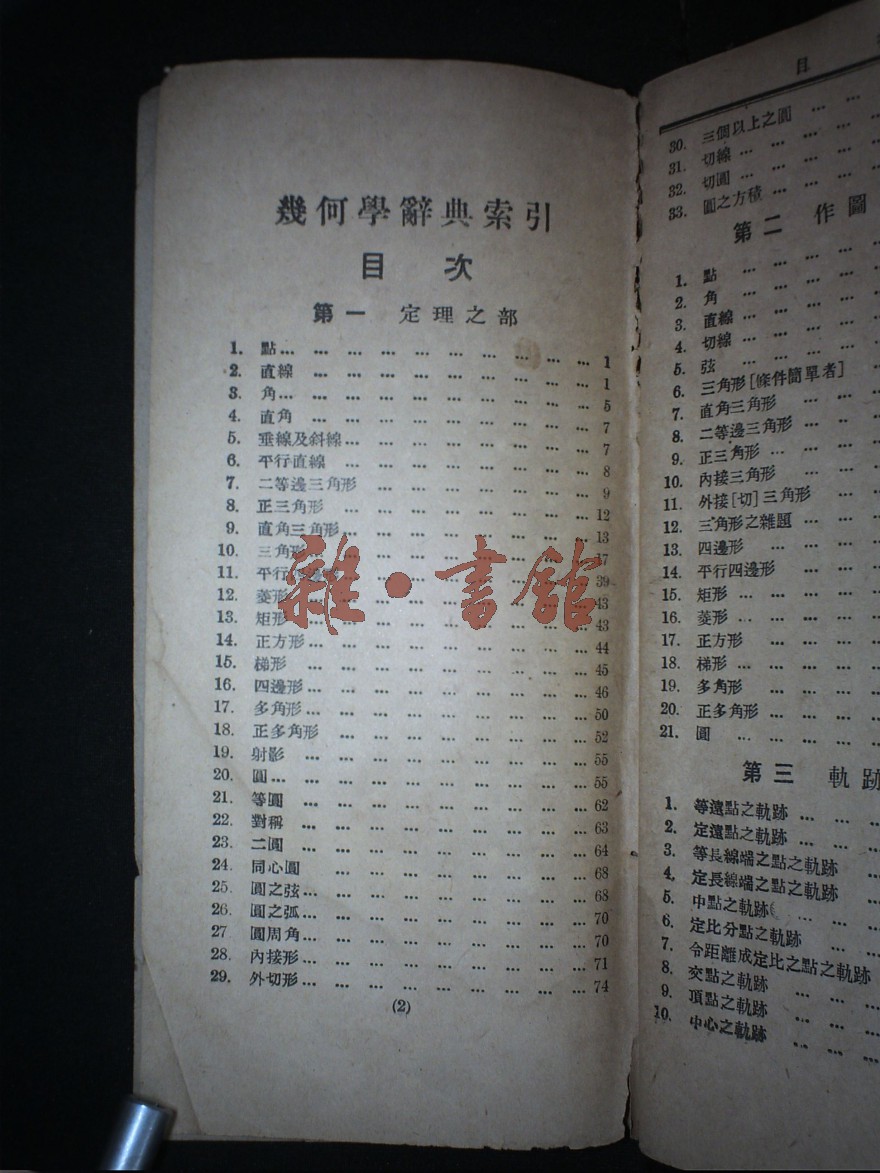 幾何學辭典索引
目 次
第一 定理之部
1. 點… … … … … … … … … … 1
2. 直線 … … … … … … … … … 1
3. 角… … … … … … … … … … 5
4. 直角 … … … … … … … … … 7
5. 垂線及斜線… … … … … … … … 7
6. 平行直線 … … … … … … … … 8
7. 二等邊三角形 … … … … … … … 9
8. 正三角形 … … … … … … … … 12
9. 直角三角形… … … … … … … … 13
10. 三角形 … … … … … … … … 17
11. 平行 … … … … … … … 39
12. 菱形 … … … … … … … … 43
13. 矩形 … … … … … … … … 43
14. 正方形 … … … … … … … … 44
15. 梯形 … … … … … … … … … 45
16. 四邊形… … … … … … … … … 46
17. 多角形… … … … … … … … … 50
18. 正多角形 … … … … … … … … 52
19. 射影 … … … … … … … … … 55
20. 圓… … … … … … … … … … 55
21. 等圓 … … … … … … … … … 62
22. 對稱 … … … … … … … … … 63
23. 二圓 … … … … … … … … … 64
24. 同心圓 … … … … … … … … 68
25. 圓之弦… … … … … … … … … 68
26. 圓之弧… … … … … … … … … 70
27 圓周角… … … … … … … … … 70
28. 內接形… … … … … … … … … 71
29. 外切形… … … … … … … … … 74
(2)
雜·書館
目
30. 三個以上之圓 … …
31. 切線 … … … …
32. 切圓 … … … …
33. 圓之方積 … … …
第二 作圖
1. 點 … … … …
2. 角 … … … …
3. 直線 … … … …
4. 切線 … … … …
5. 弦 … … … …
6. 三角形[條件簡單者]
7. 直角三角形 … …
8. 二等邊三角形 …
9. 正三角形 … … …
10. 內接三角形 … …
11. 外接[切]三角形 …
12. 三角形之雜題 …
13. 四邊形 … … …
14. 平行四邊形 … …
15. 矩形 … … … …
16. 菱形 … … … …
17. 正方形 … … …
18. 梯形 … … … …
19. 多角形 … … …
20. 正多角形 … … …
21. 圓 … … … …
第三 軌跡
1. 等遠點之軌跡 … …
2. 定遠點之軌跡 … …
3. 等長線端之點之軌跡
4. 定長線端之點之軌跡
5. 中點之軌跡 … …
6. 定比分點之軌跡 …
7. 令距離成定比之點之軌跡
8. 交點之軌跡 … …
9. 頂點之軌跡 … …
10. 中心之軌跡 … …